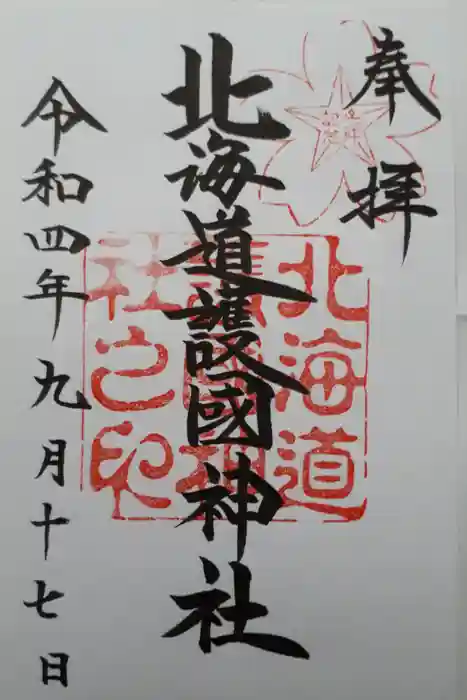 奉拝
北海道護國神社
令和四年九月十七日
北海道
護國神
社之印